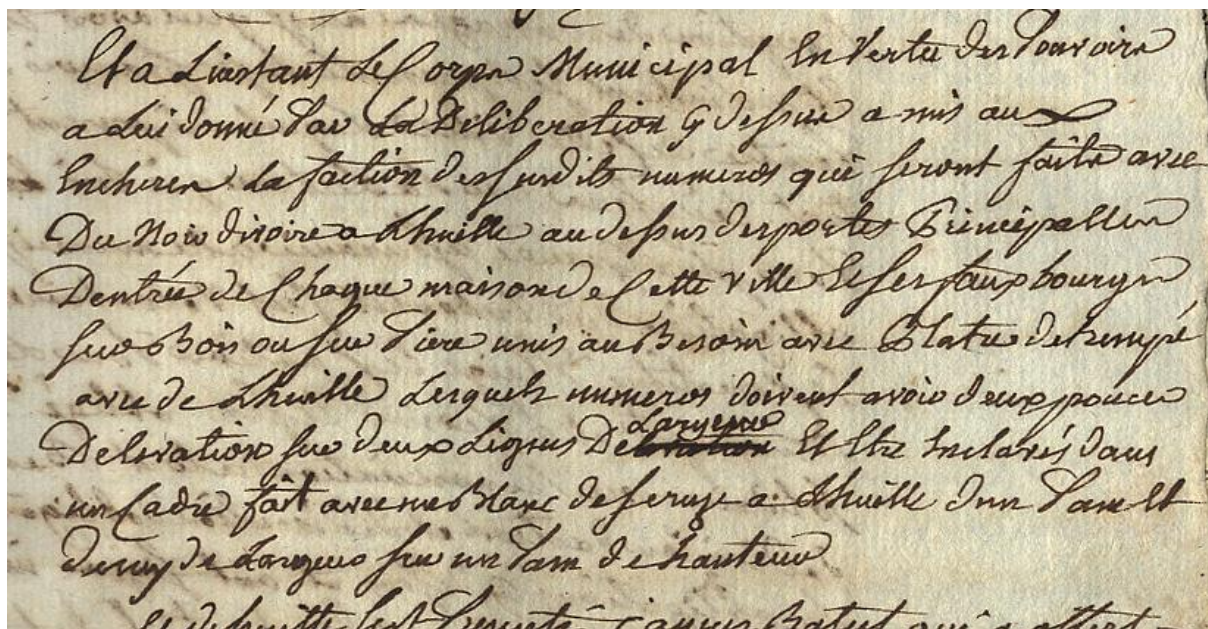 Et a Linstant Le Corps Municipal En Vertu des Pouvoirs
a Lui donné Par La Deliberation Cy dessus a mis aux
Encheres La faction des susdits numeros qui seront faits avec
Du Noir divoire a Lhuille au dessus des portes Principalles
Dentrée de Chaque maison de Cette Ville Et ses fauxbourgs
sur Bois ou sur Piere unis au Besoin avec Platre detrempé
avec de Lhuille Lesquels numeros doivent avoir deux pouces
Delevation sur deux Lignes De Largeur Et Etre Enclavés dans
un Cadre fait avec un Blanc de seruse a Lhuille dun Pam Et
demy de Largeur sur un Pam de hauteur
Et de suitte sest Presenté Batut qui a offert